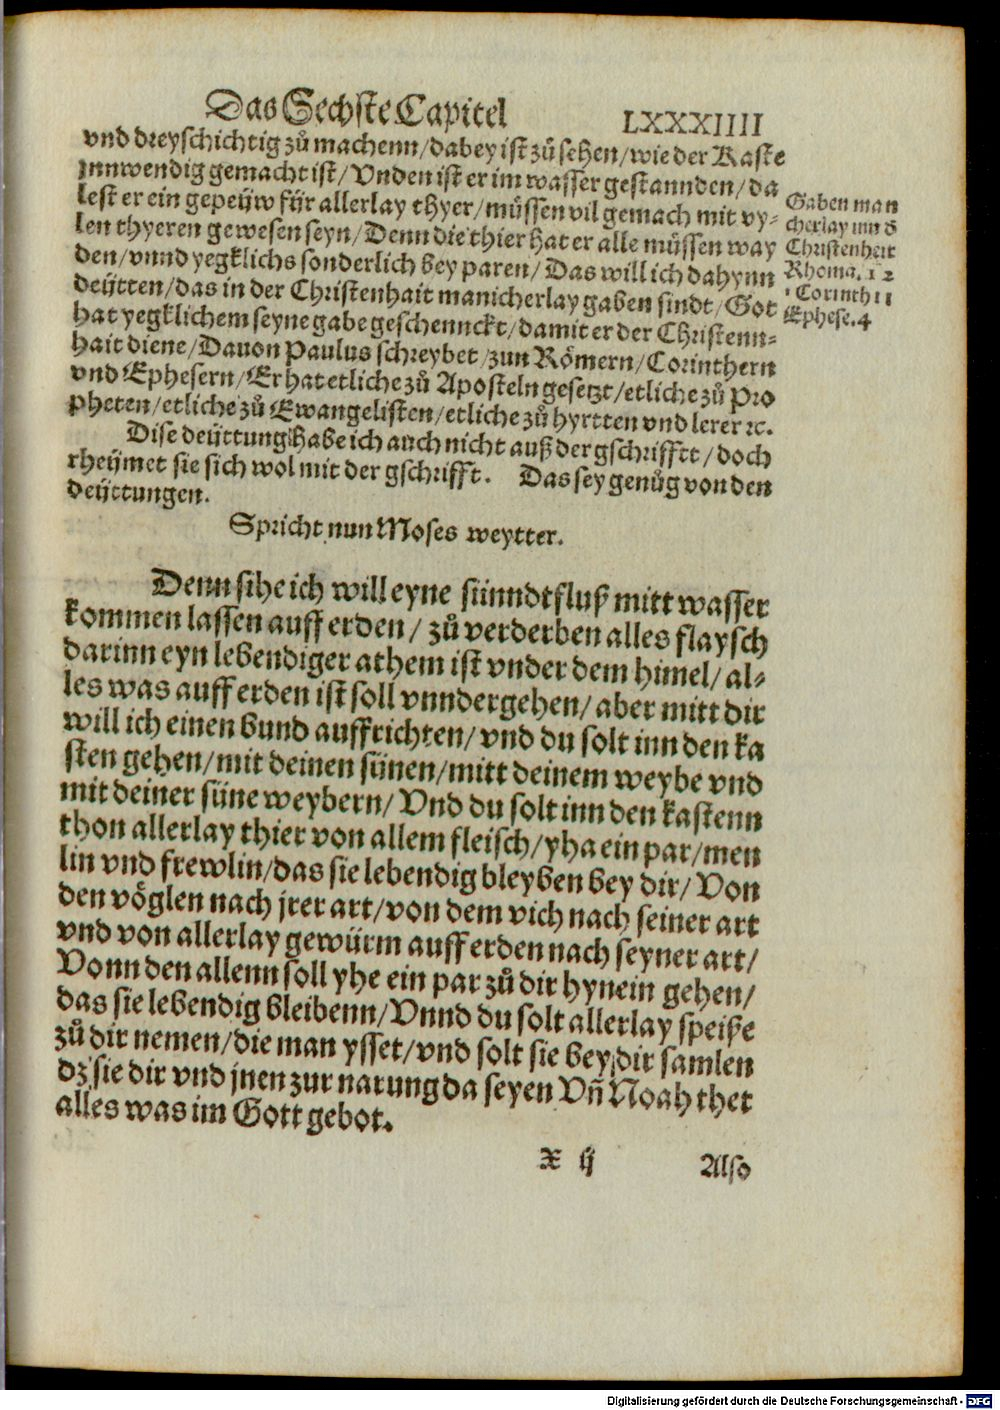 Das Sechste Capitel LXXXIIII
vnd dreyschichtig zů machenn/dabey ist zů sehen/wie der Kaste
jnnwendig gemacht ist/Vnden ist er im wasser gestannden/da
lest er ein gepeüw für allerlay thyer/müssen vil gemach mit vy-
len thyeren gewesen seyn/Denn die thier hat er alle müssen way
den/vnnd yegklichs sonderlich bey paren/Das will ich dahynn
deütten/das in der Christenhait manicherlay gaben sindt/Got
hat yegklichem seyne gabe geschennckt/damit er der Christenn-
hait diene/Dauon Paulus schreybet/zun Römern/Corinthern
vnd Ephesern/Er hat etliche zů Aposteln gesetzt/etliche zů Pro
pheten/etliche zů Ewangelisten/etliche zů hyrtten vnd lerer ꝛc.
Dise deüttung habe ich auch nicht auß der gschrifft/doch
rheümet sie sich wol mit der gschrifft. Das sey genůg von den
deüttungen.
Gaben man
cherlay inn d
Christenheit
Rhoma. 12
1 Corinth 11
Ephese. 4
Spricht nun Moses weytter.
Denn sihe ich will eyne sünndtfluß mitt wasser
kommen lassen auff erden/ zů verderben alles flaysch
darinn eyn lebendiger athem ist vnder dem himel/ al-
les was auff erden ist soll vnndergehen/ aber mitt dir
will ich einen bund auffrichten/ vnd du solt inn den ka
sten gehen/mit deinen sünen/mitt deinem weybe vnd
mit deiner süne weybern/ Vnd du solt inn den kastenn
thon allerlay thier von allem fleisch/yha ein par/men
lin vnd frewlin/das sie lebendig bleyben bey dir/ Von
den vöglen nach jrer art/von dem vich nach seiner art
vnd von allerlay gewürm auff erden nach seyner art/
Vonn den allenn soll yhe ein par zů dir hynein gehen/
das sie lebendig bleibenn/Vnnd du solt allerlay speiße
zů dir nemen/die man ysset/vnd solt sie bey dir samlen
dz sie dir vnd jnen zur narung da seyen Vñ Noah thet
alles was im Gott gebot.
X ij Also
Digitalisierung gefördert durch die Deutsche Forschungsgemeinschaft - DFG